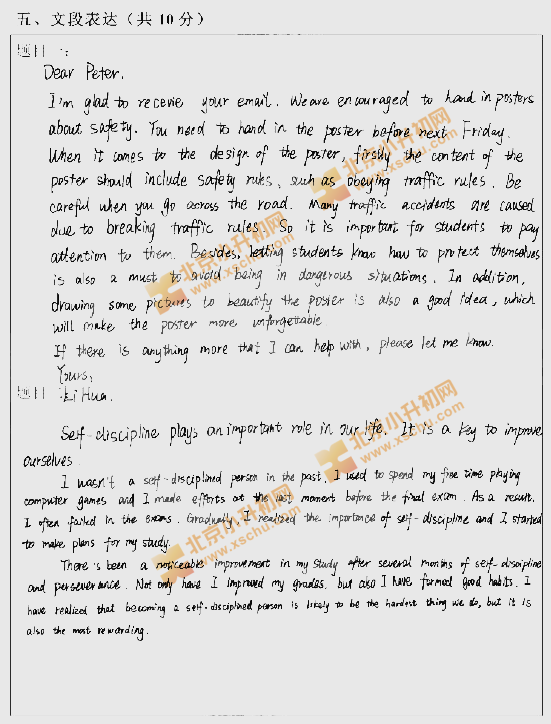 五、文段表达（共 10 分）
题目一：
Dear Peter,
I'm glad to receive your email. We are encouraged to hand in posters
about safety. You need to hand in the poster before next Friday.
When it comes to the design of the poster, firstly the content of the
poster should include safety rules, such as obeying traffic rules. Be
careful when you go across the road. Many traffic accidents are caused
due to breaking traffic rules. So it is important for students to pay
attention to them. Besides, letting students know how to protect themselves
is also a must to avoid being in dangerous situations. In addition,
drawing some pictures to beautify the poster is also a good idea, which
will make the poster more unforgettable.
If there is anything more that I can help with, please let me know.
Yours,
题目
Li Hua.
Self-discipline plays an important role in our life. It is a key to improve
ourselves.
I wasn't a self-disciplined person in the past. I used to spend my free time playing
computer games and I made efforts at the last moment before the final exam. As a result,
I often failed in the exams. Gradually, I realized the importance of self-discipline and I started
to make plans for my study.
There is been a noticeable improvement in my study after several months of self-discipline
and perseverance. Not only have I improved my grades, but also I have formed good habits. I
have realized that becoming a self-disciplined person is likely to be the hardest thing we do, but it is
also the most rewarding.
北京小升初网
www.xschu.com
北京小升初网
www.xschu.com
北京小升初网
www.xschu.com
北京小升初网
www.xschu.com